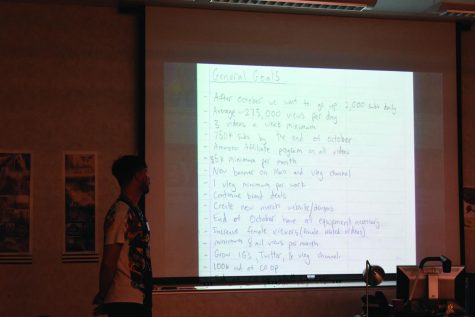 General Goals
- After October we want to go up 2,000 subs daily
- Average ~275,000 views per day
- 3 videos a week minimum
- 760k subs by the end of October
- Amazon Affiliate program on all videos
- $5k minimum per month
- New banner on Main and vlog channel
- 1 vlog minimum per week
- Continue brand deals
- Create new merch website/designs
- End of October have all equipment necessary
- Increase female viewers
- minimum 8 mil views per month
- Grow IG's, Twitter, & vlog channel
- 100k out of CO-OP